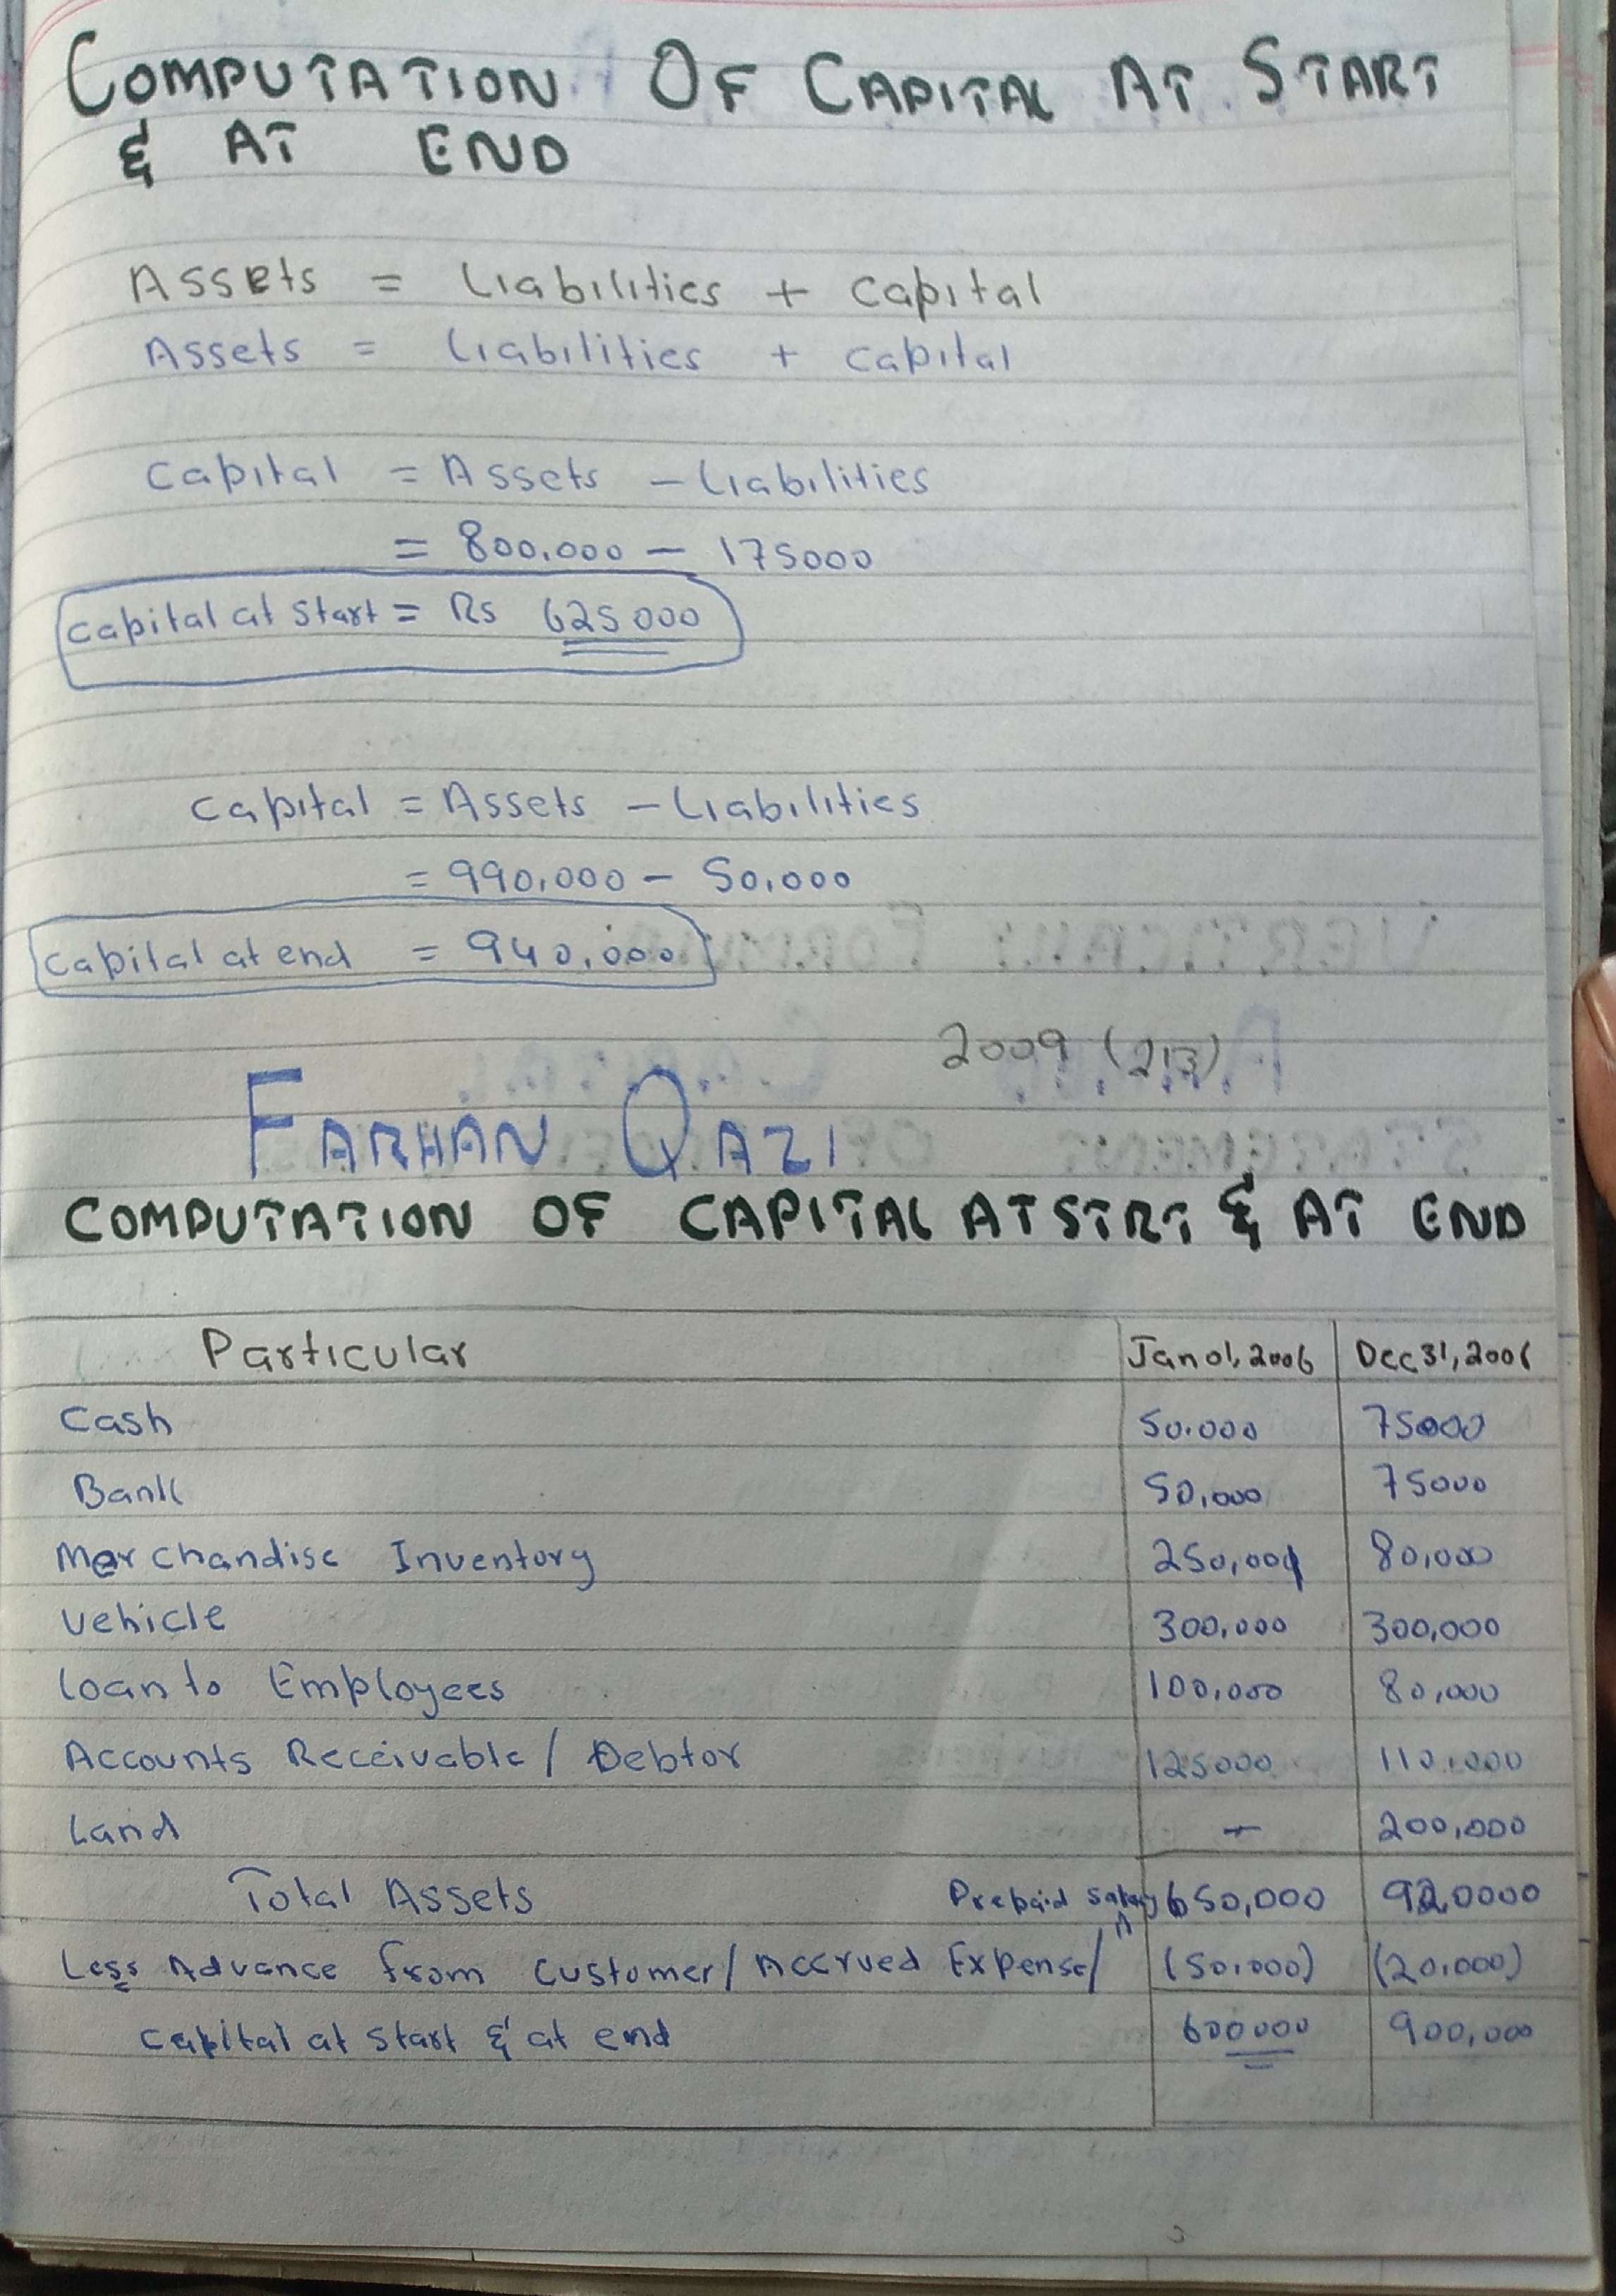 COMPUTATION OF CAPITAL AT START
& AT END
Assets = Liabilities + Capital
Assets = Liabilities + Capital
Capital = Assets – Liabilities
= 800,000 – 175000
Capital at Start = Rs 625000
Capital = Assets – Liabilities
= 990,000 – 50,000
Capital at end = 940,000
2009 (213)
FARHAN QAZI
COMPUTATION OF CAPITAL AT STRT & AT END
Particular Jan 01, 2006 Dec 31, 2006
Cash 50.000 75000
Bank 50,000 75000
Merchandise Inventory 250,000 80,000
Vehicle 300,000 300,000
Loan to Employees 100,000 80,000
Accounts Receivable / Debtor 125000 110,000
Land – 200,000
Total Assets 650,000 920000
Prepaid Salary
Less Advance from Customer / Accrued Expense / (50,000) (20,000)
Capital at Start & at end 600000 900,000